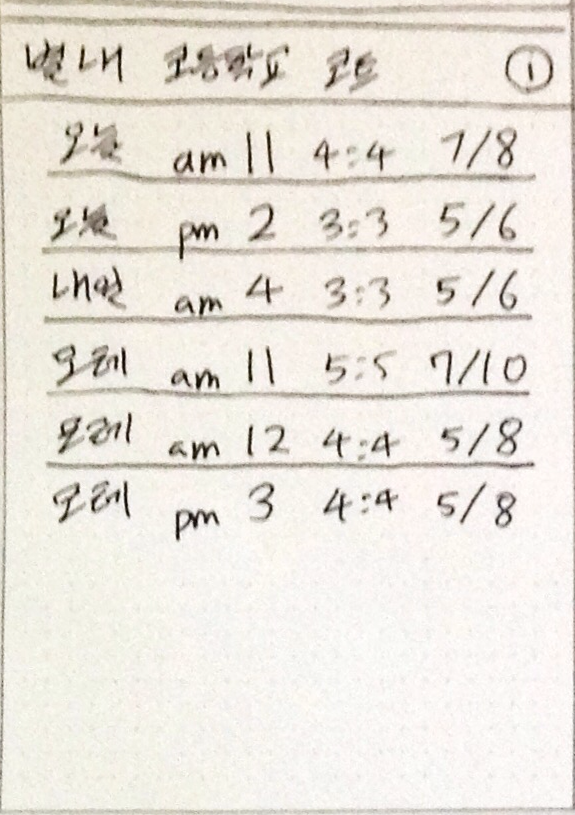 별내 고등학교 코트 ⓘ
오늘 am 11 4:4 7/8
오늘 pm 2 3:3 5/6
내일 am 4 3:3 5/6
모레 am 11 5:5 7/10
모레 am 12 4:4 5/8
모레 pm 3 4:4 5/8